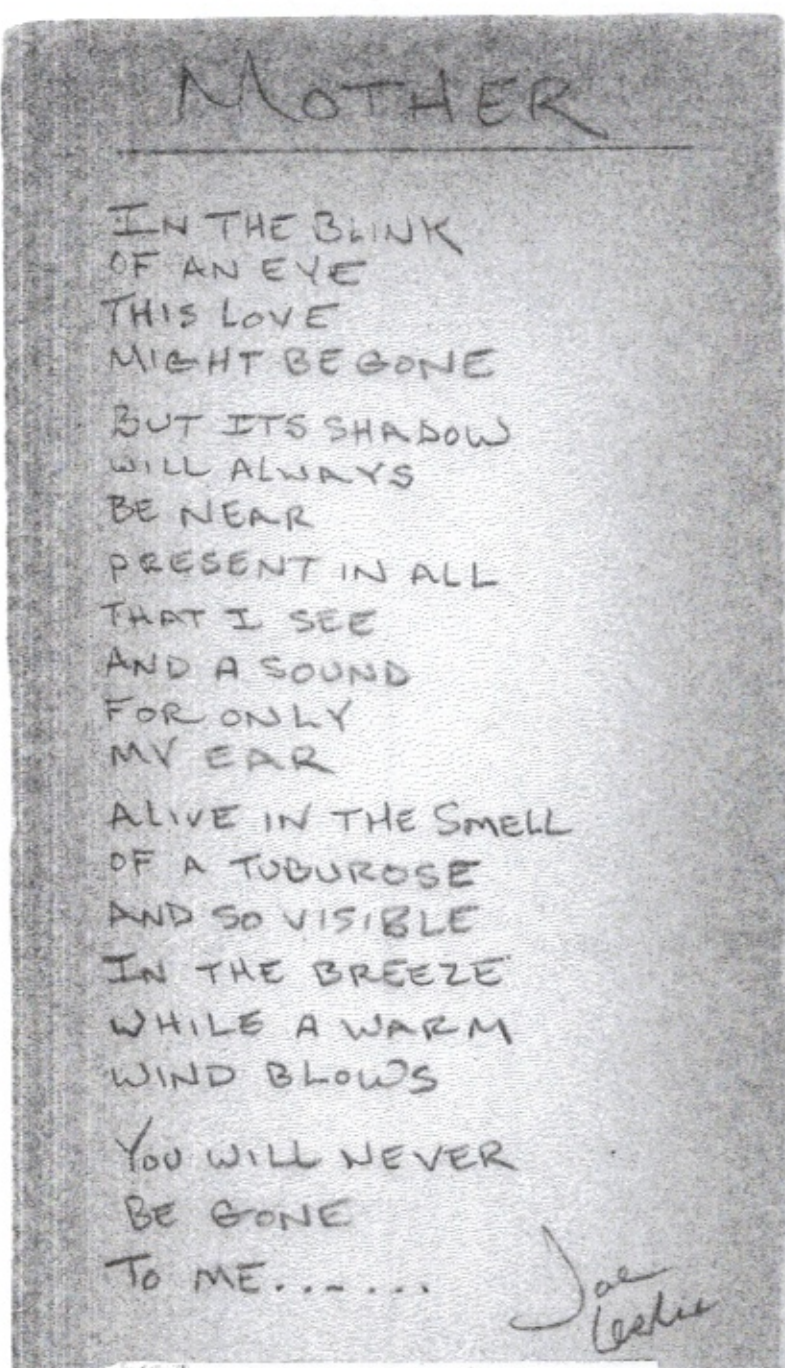 MOTHER
IN THE BLINK
OF AN EYE
THIS LOVE
MIGHT BE GONE
BUT ITS SHADOW
WILL ALWAYS
BE NEAR
PRESENT IN ALL
THAT I SEE
AND A SOUND
FOR ONLY
MY EAR
ALIVE IN THE SMELL
OF A TUBUROSE
AND SO VISIBLE
IN THE BREEZE
WHILE A WARM
WIND BLOWS
YOU WILL NEVER
BE GONE
TO ME.......
Joe
Leslie